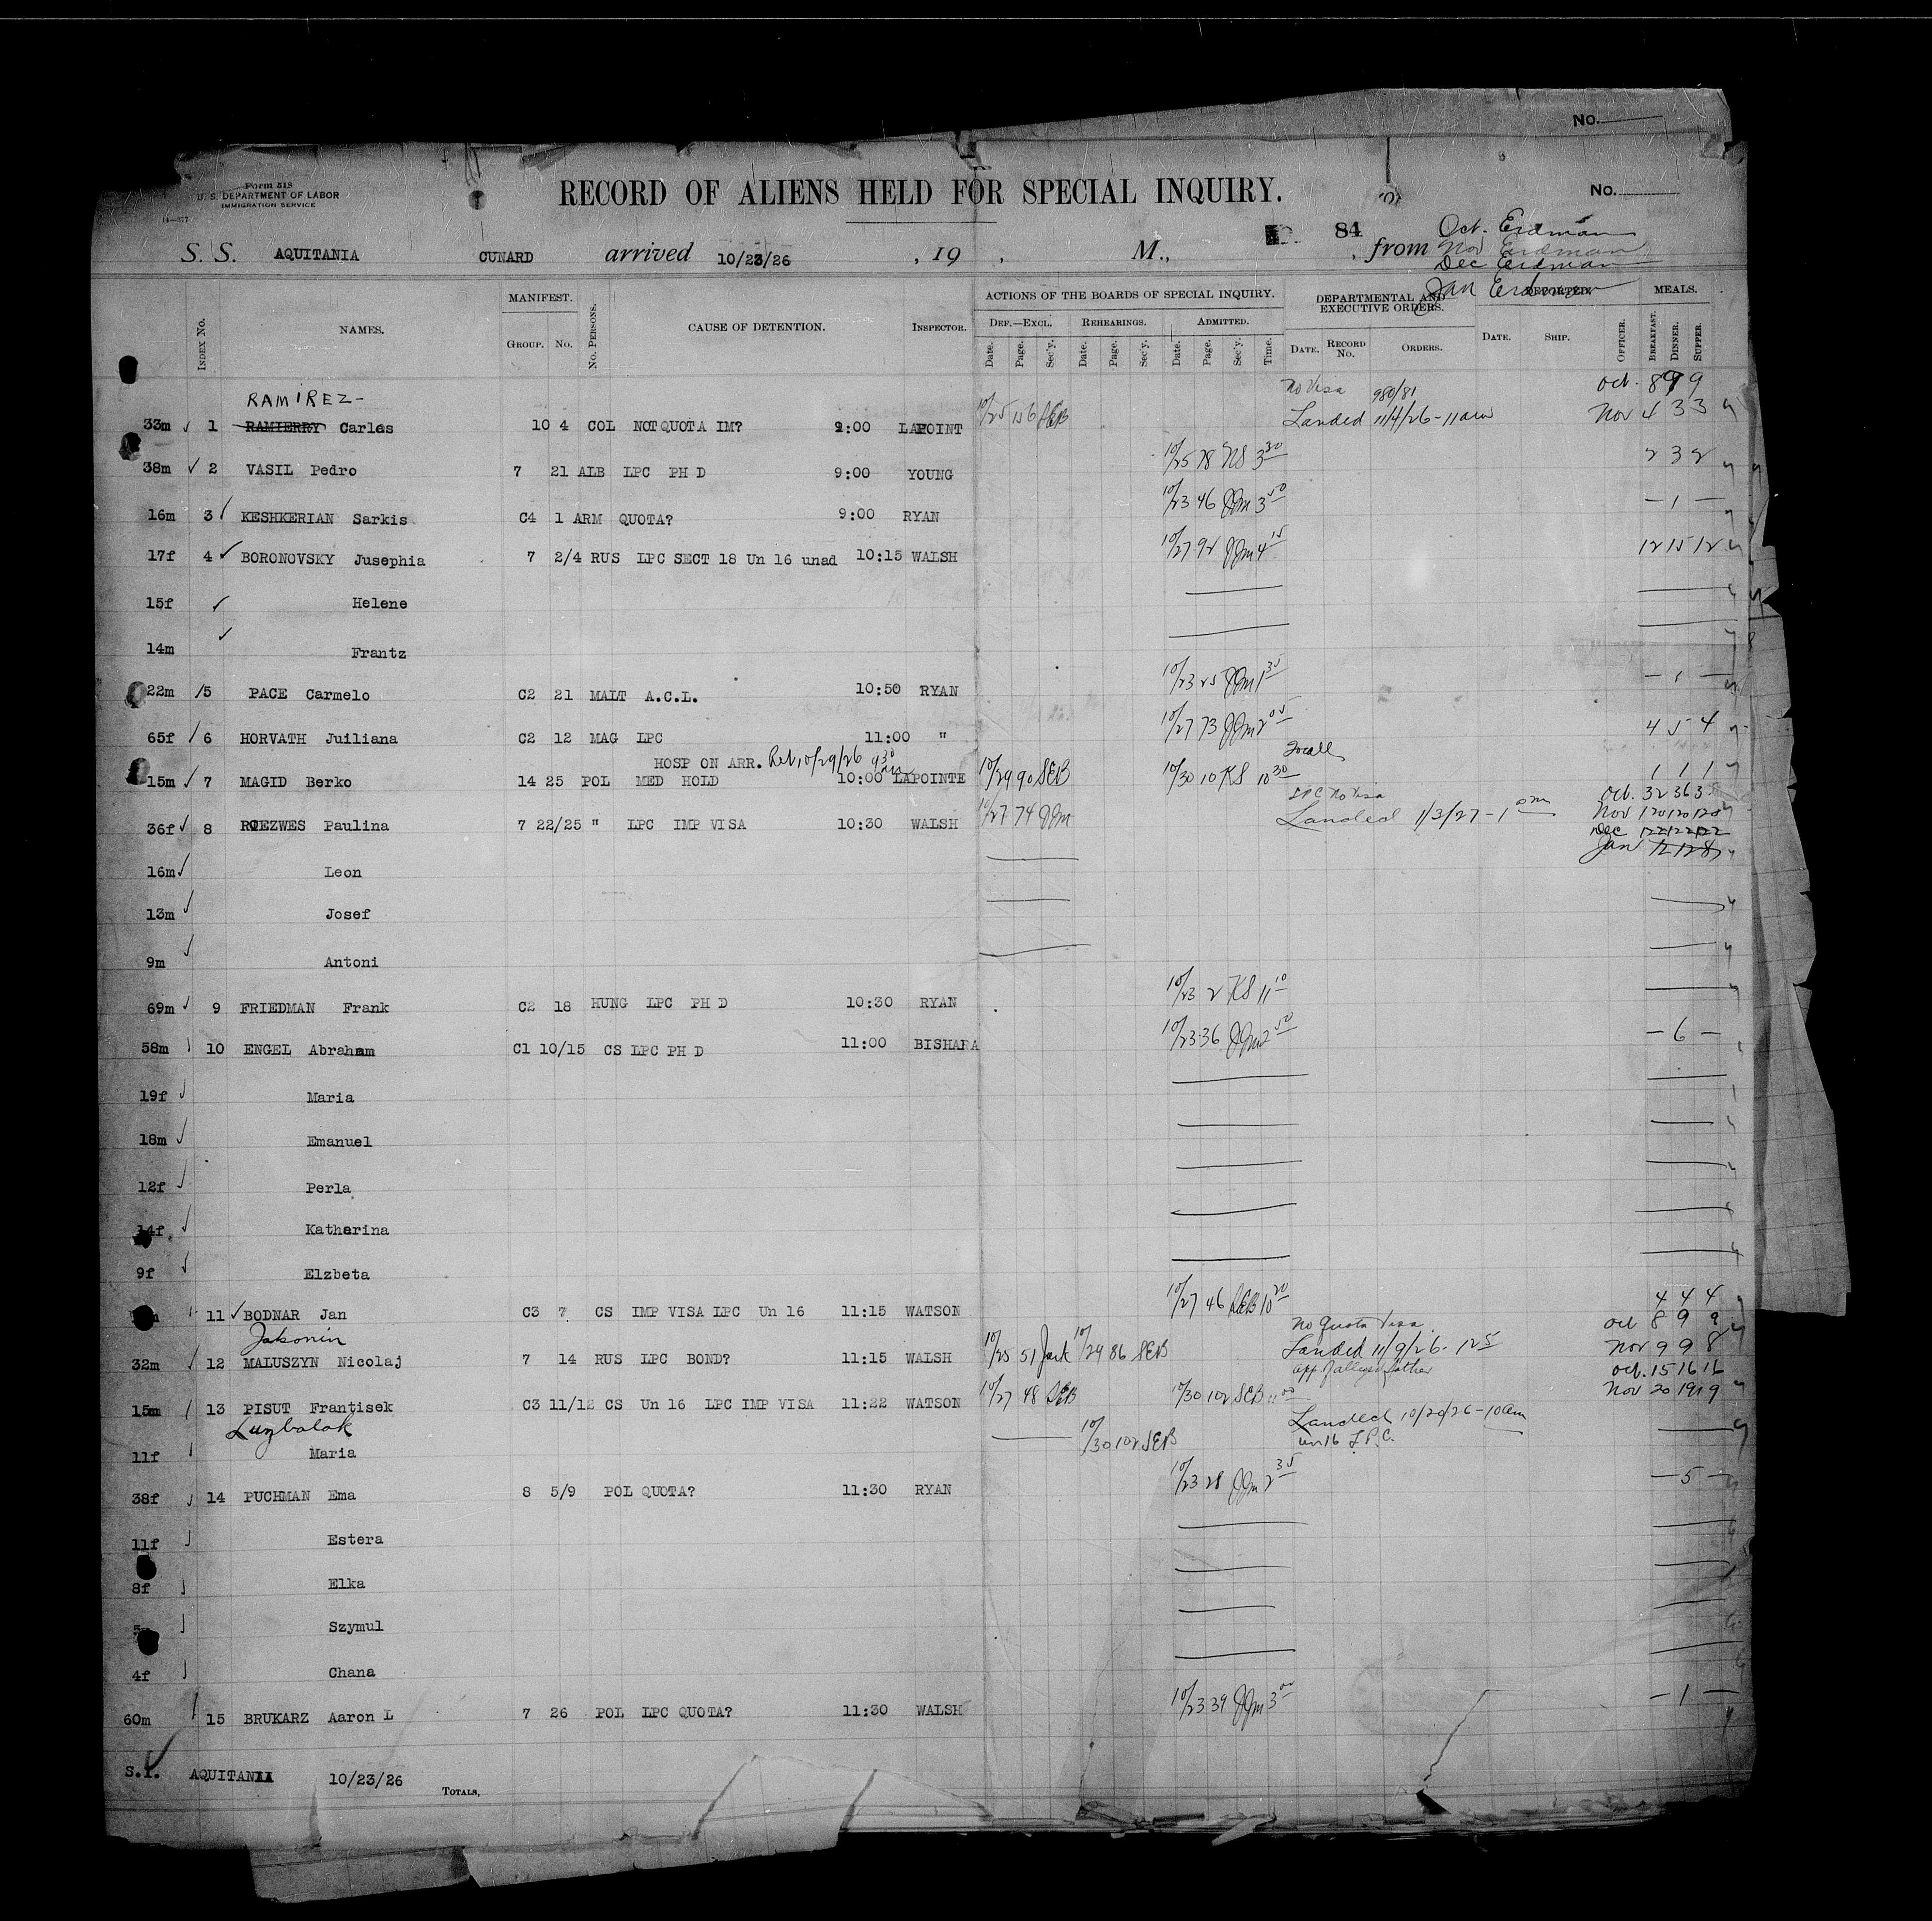 No.
Form 518
U. S. DEPARTMENT OF LABOR
IMMIGRATION SERVICE
14—377
RECORD OF ALIENS HELD FOR SPECIAL INQUIRY.
No.
84
Oct. Erdman
S. S. AQUITANIA CUNARD arrived 10/23/26 , 19 , M., , from Nov Erdman
Dec Erdman
Jan Erdman
INDEX No. NAMES. MANIFEST. GROUP. No. No. PERSONS. CAUSE OF DETENTION. INSPECTOR. ACTIONS OF THE BOARDS OF SPECIAL INQUIRY. DEF.—EXCL. REHEARINGS. ADMITTED. Date. Page. Sec'y. Date. Page. Sec'y. Date. Page. Sec'y. Time. DEPARTMENTAL AND EXECUTIVE ORDERS. DATE. RECORD No. ORDERS. DEPORTED. DATE. SHIP. OFFICER. MEALS. BREAKFAST. DINNER. SUPPER.
RAMIREZ- No Visa 980/81 Oct. 8 9 9
33m 1 RAMIERRY Carlos 10 4 COL NOT QUOTA IM? 9:00 LAPOINT 10/25 116 SEB Landed 11/4/26 - 11am Nov 4 3 3
38m 2 VASIL Pedro 7 21 ALB LPC PH D 9:00 YOUNG 10/25 78 NS 3 30 2 3 2
16m 3 KESHKERIAN Sarkis C4 1 ARM QUOTA? 9:00 RYAN 10/23 46 JJM 3 50 — 1 —
17f 4 BORONOVSKY Jusephia 7 2/4 RUS LPC SECT 18 Un 16 unad 10:15 WALSH 10/27 92 JJM 4 15 12 15 12
15f Helene
14m Frantz
22m 5 PACE Carmelo C2 21 MALT A.C.L. 10:50 RYAN 10/23 25 JJM 1 35 — 1 —
65f 6 HORVATH Juiliana C2 12 MAG LPC 11:00 " 10/27 73 JJM 2 05 4 5 4
HOSP ON ARR. Rel 10/29/26 9 30 am
15m 7 MAGID Berko 14 25 POL MED HOLD 10:00 LAPOINTE 10/29 90 SEB 10/30 10 KS 10 30 1 1 1
LPC No Visa Oct. 32 36 3
36f 8 ROEZWES Paulina 7 22/25 " LPC IMP VISA 10:30 WALSH 10/27 74 JJM Landed 1/3/27 - 1 pm Nov 120 120 120
Dec 122 122 122
Jan 12 12 8
16m Leon
13m Josef
9m Antoni
69m 9 FRIEDMAN Frank C2 18 HUNG LPC PH D 10:30 RYAN 10/23 2 KS 11 10
58m 10 ENGEL Abraham C1 10/15 CS LPC PH D 11:00 BISHARA 10/23 36 JJM 2 50 — 6 —
19f Maria
18m Emanuel
12f Perla
14f Katharina
9f Elzbeta
11 BODNAR Jan C3 7 CS IMP VISA LPC Un 16 11:15 WATSON 10/27 46 SEB 10 20 4 4 4
Jakonin No Quota Visa. Oct 8 9 9
32m 12 MALUSZYN Nicolaj 7 14 RUS LPC BOND? 11:15 WALSH 10/25 51 10/29 86 SEB Landed 11/9/26 - 12 5 Nov 9 9 8
app. of alleged father Oct. 15 16 16
15m 13 PISUT Frantisek C3 11/12 CS Un 16 LPC IMP VISA 11:22 WATSON 10/27 48 SEB 10/30 102 SEB 11 00 Nov 20 19 19
Landed 10/20/26 - 10am
11f Maria 10/30 102 SEB un 16 L.P.C.
38f 14 PUCHMAN Ema 8 5/9 POL QUOTA? 11:30 RYAN 10/23 28 JJM 2 35 — 5 —
11f Estera
8f Elka
Szymul
4f Chana
60m 15 BRUKARZ Aaron L 7 26 POL LPC QUOTA? 11:30 WALSH 10/23 39 JJM 3 00 — 1 —
S.I. AQUITANIA 10/23/26
TOTALS,